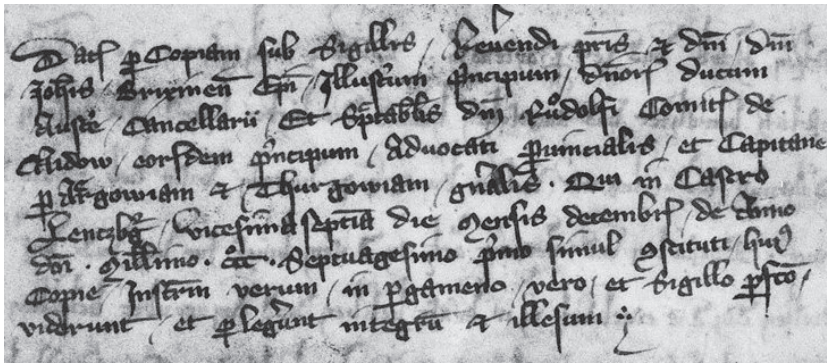 Datʒ ꝑ Copiam sub Sigillis, Reuendi pris & dni, dni
Johis Brixinen Epi, Illustrium principum, dnorʒ ducum
Austrie, Cancellarii, Et Spectablis dni Růdolfi Comitʒ de
Nidow, eorundem principum, Advocati ꝓuincialis, et Capitanei
ꝑ Argowiam & Thurgowiam, gnalis. Qui in Castro
Lentzbg, vicesima septia die Mensis decembrʒ, de Anno
dni. Millimo. ccc. Septuagesimo primo simul ꝯstituti, huiꝰ
Copie, Instrm verum, in ꝑgameno, vero, et Sigillo
viderunt, et ꝑlegerunt integrum & illesum